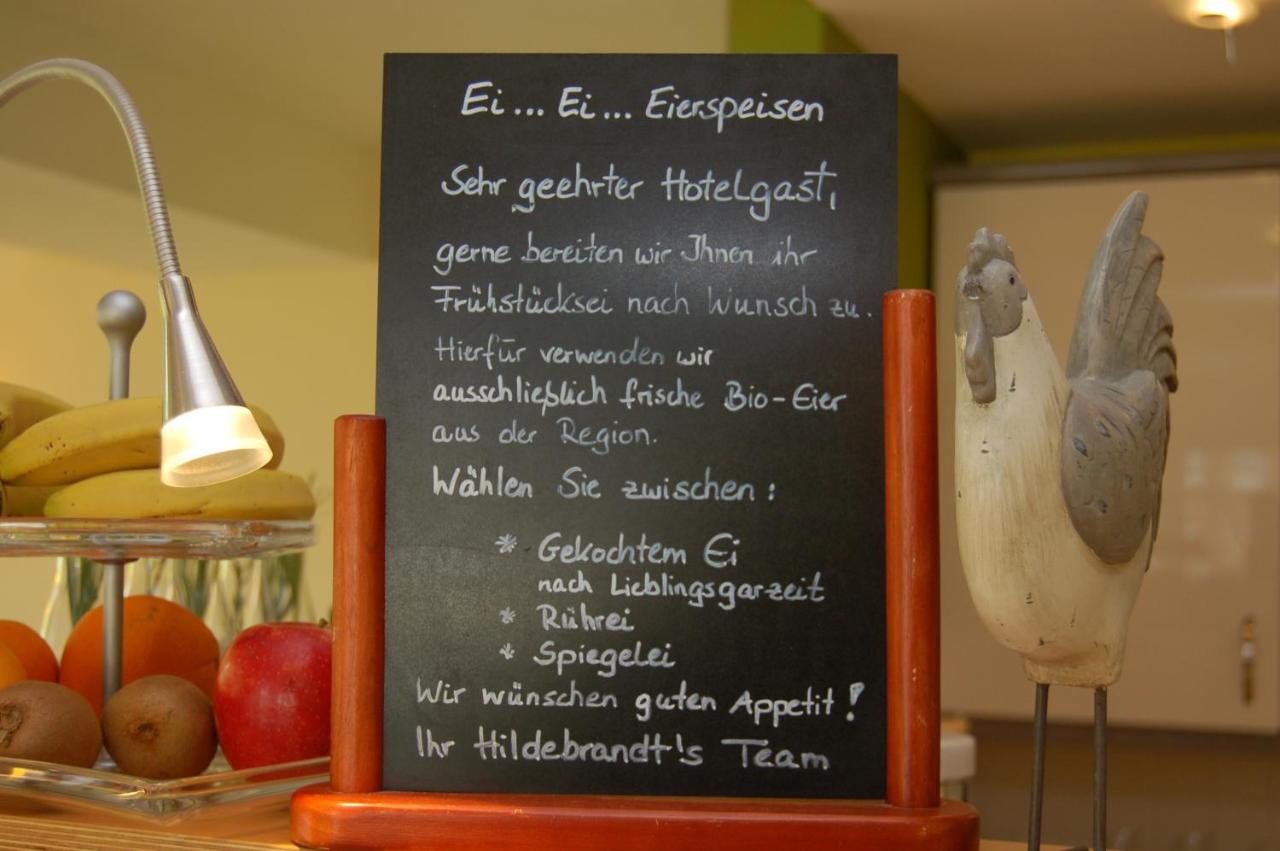 Ei... Ei... Eierspeisen
Sehr geehrter Hotelgast,
gerne bereiten wir Ihnen ihr
Frühstücksei nach Wunsch zu.
Hierfür verwenden wir
ausschließlich frische Bio-Eier
aus der Region.
Wählen Sie zwischen:
* Gekochtem Ei
nach Lieblingsgarzeit
* Rührei
* Spiegelei
Wir wünschen guten Appetit!
Ihr Hildebrandt's Team